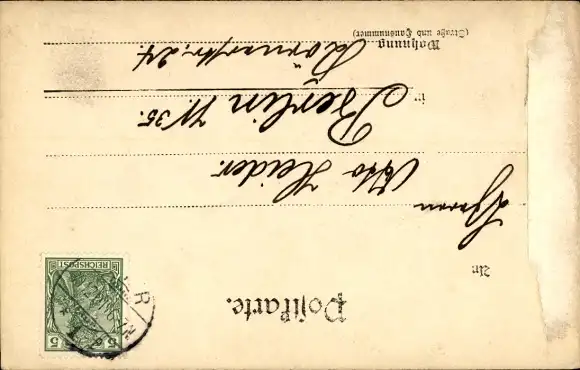 Postkarte.
An
Herrn Otto Heider.
in Berlin W 35.
Wohnung
(Straße und Hausnummer)
Körnerstr. 24.
REICHSPOST
5 5